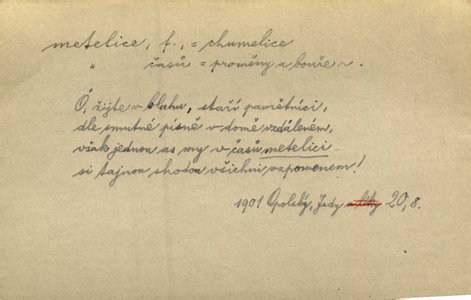 metelice, f., = chumelice
" časů = proměny a bouře ~.
Ó, žijte v bluhu, staří pamětníci,
dle smutné písně v domě vzdáleném,
však jednou as my v časů metelici
si tajnou shodou všichni vzpomenem!
1901 Opolský, Jedy a léky 20, 8.